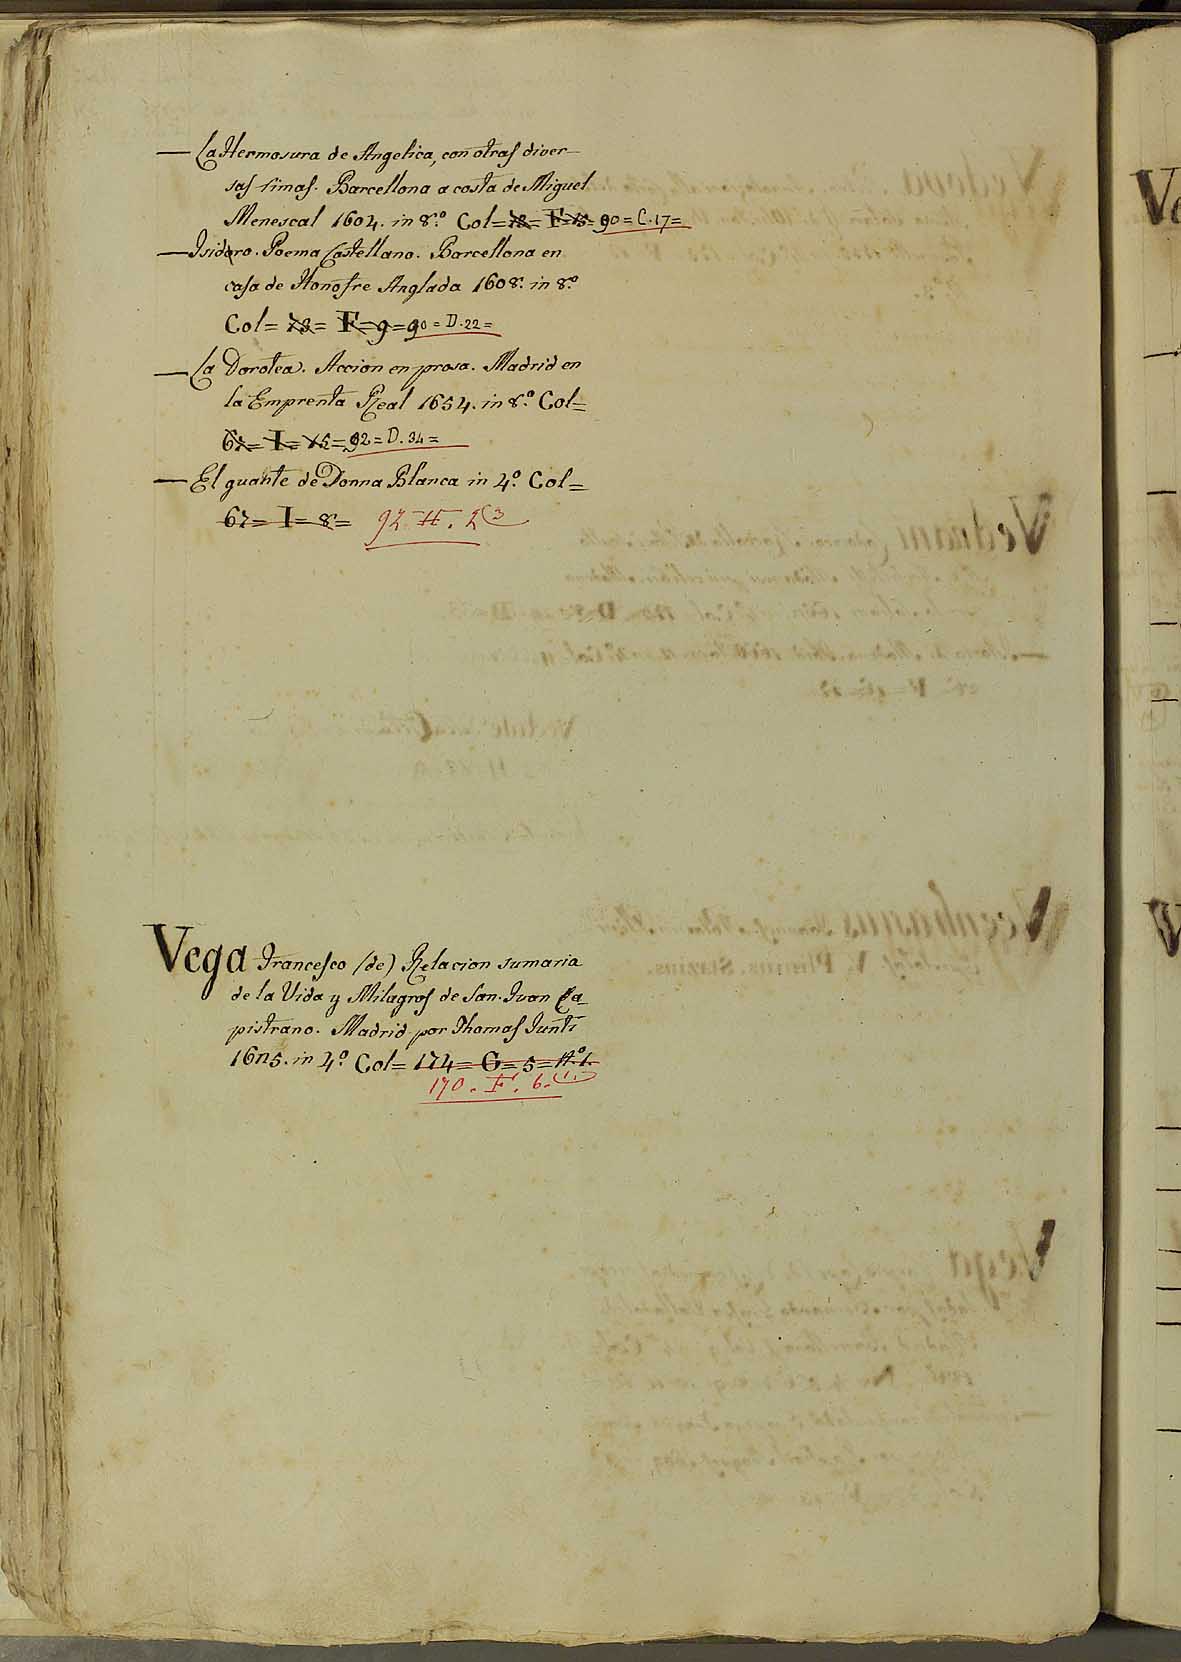 — La Hermosura de Angelica, con otras diver-
sas rimas. Barcellona a costa de Miguel
Menescal 1604. in 8.º Col= 78= F=15= 90= C.17=
— Isidoro. Poema Castellano. Barcellona en
casa de Honofre Anglada 1608. in 8.º
Col= 78= F=9= 90= D.22=
— La Dorotea. Accion en prosa. Madrid en
la Emprenta Real 1654. in 8.º Col=
67= I= 15= 92= D.34=
— El guante de Donna Blanca in 4.º Col=
67= I= 8= 92 H. 2(3
Vega Francesco (de) Relacion sumaria
de la Vida y Milagros de San. Ivan Ca-
pistrano. Madrid por Thomas Iunti
in 4.º Col= 174= G= 5= N.º1.
170. F. 6. (1.)
Ve